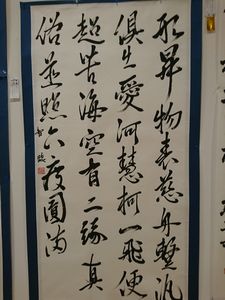 形昇物表慈舟暫汎
俱生愛河慧柯一飛便
超苦海空有二緣真
俗並照六度圓滿